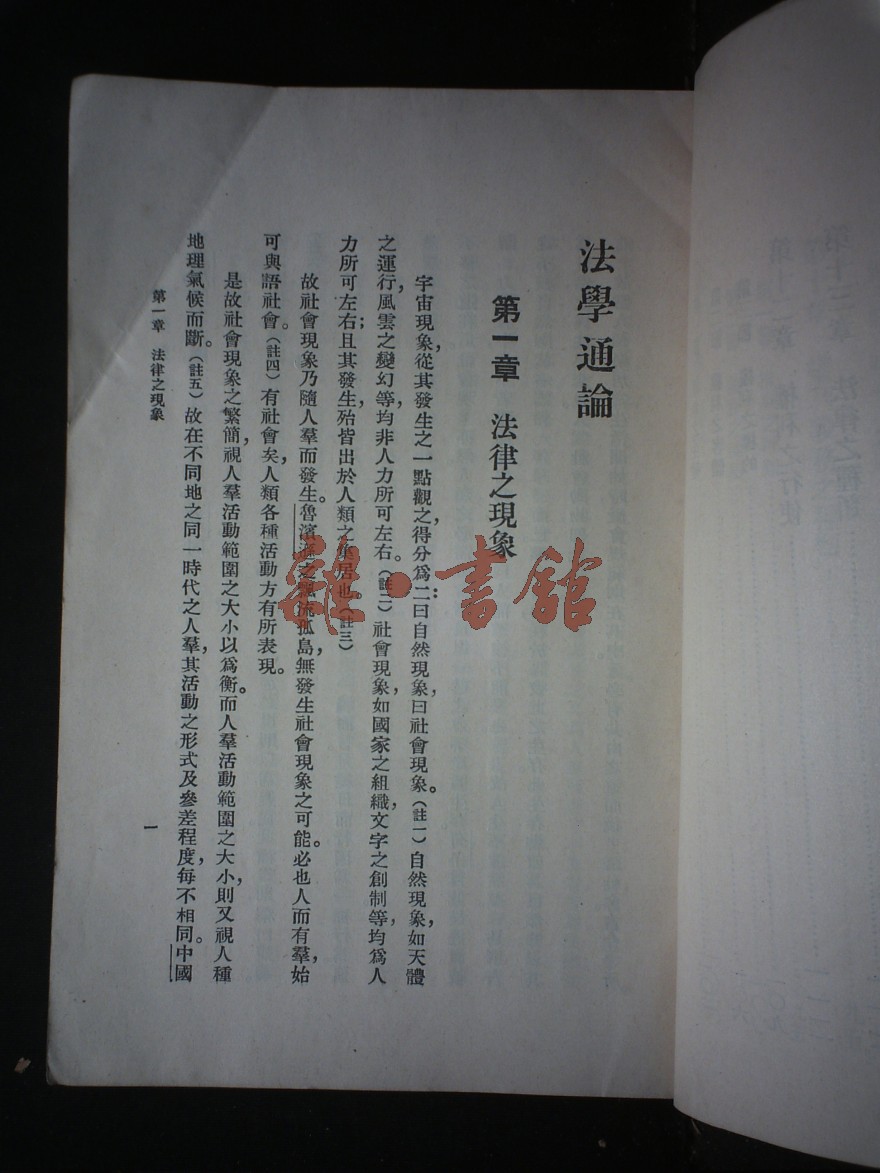 法學通論
第一章　法律之現象
宇宙現象，從其發生之一點觀之，得分爲二：曰自然現象，曰社會現象。（註一）自然現象，如天體
之運行，風雲之變幻等，均非人力所可左右。（註二）社會現象，如國家之組織，文字之創制等，均爲人
力所可左右；且其發生，殆皆出於人類之集居也。（註三）
故社會現象乃隨人羣而發生。魯濱遜之飄流孤島，無發生社會現象之可能。必也人而有羣，始
可與語社會。（註四）有社會矣，人類各種活動方有所表現。
是故社會現象之繁簡，視人羣活動範圍之大小以爲衡。而人羣活動範圍之大小，則又視人種
地理氣候而斷。（註五）故在不同地之同一時代之人羣，其活動之形式及參差程度，每不相同。中國
第一章　法律之現象
一
雜·書館